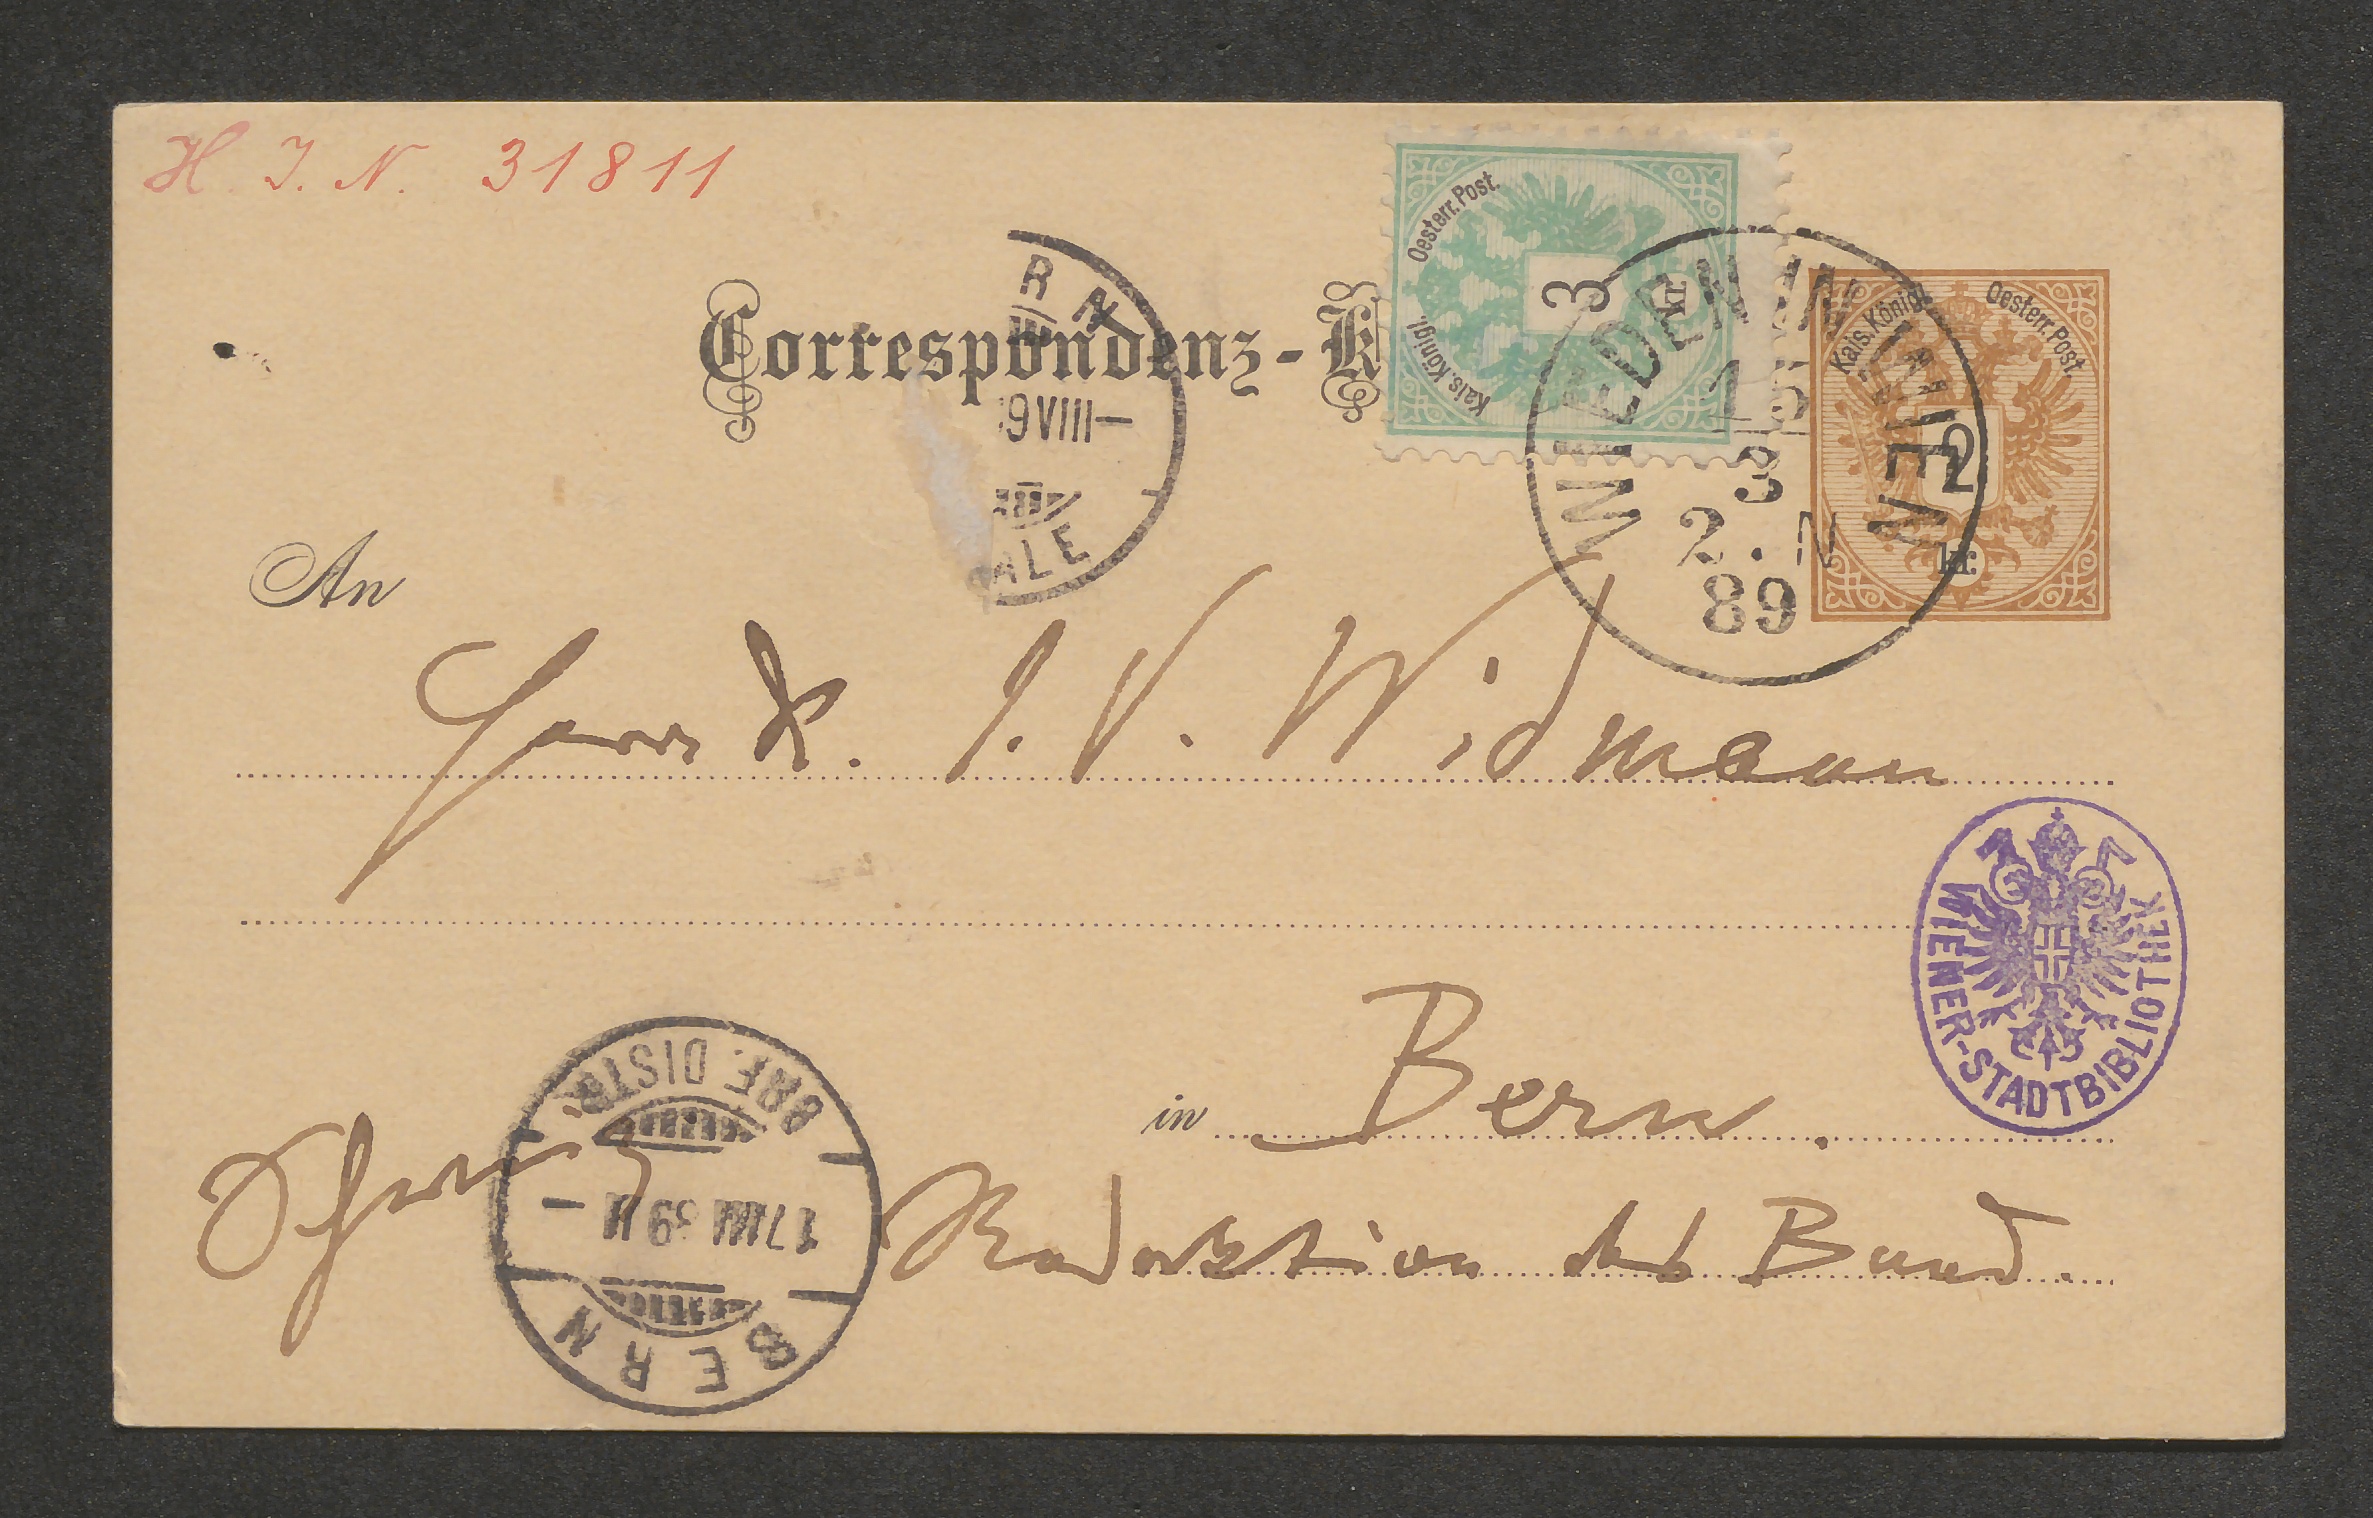 H. I. N. 31811
Correspondenz-K
Kais. Königl. Oesterr. Post.
3
Kais. Königl. Oesterr. Post.
2
kr.
RN
III
9 VIII–
ALE
WIEDEN WIEN
15
8
2. N
89
An
Herrn Dr. J. V. Widmann
WIENER-STADTBIBLIOTHEK
in Bern.
Schweiz
Redaktion des Bund.
BRF. DISTR.
17 VIII 89
BERN